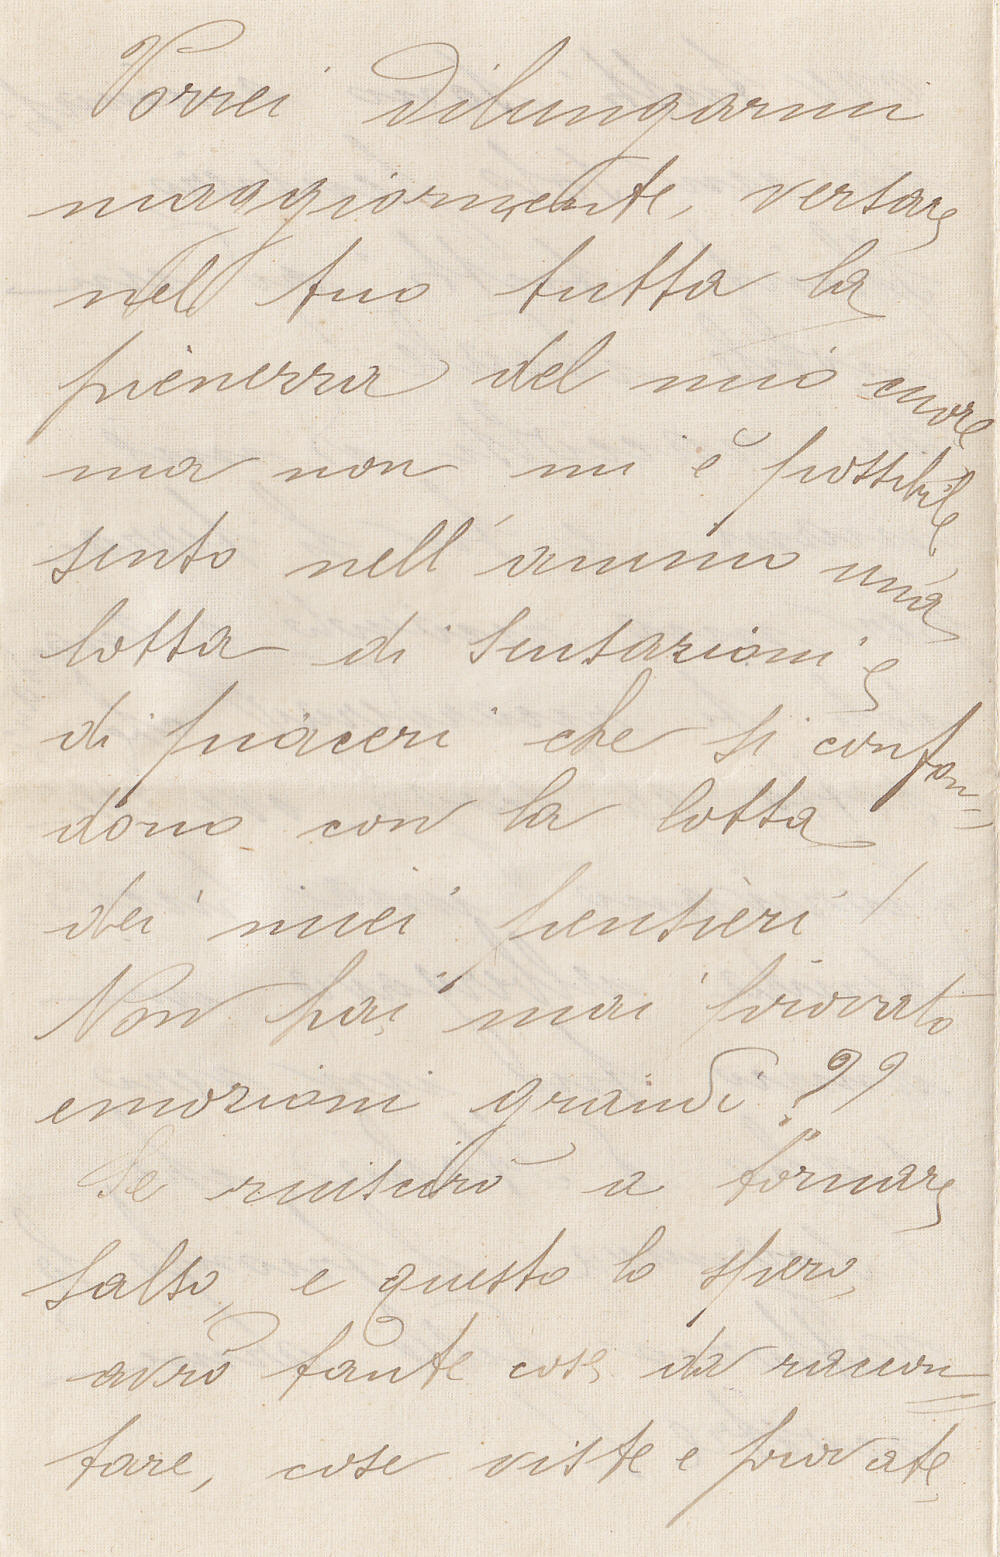 Vorrei dilungarmi
maggiormente, versare
nel tuo tutta la
pienezza del mio cuore
ma non mi è possibile,
sento nell'animo una
lotta di sensazioni e
di piaceri che si confon=
dono con la lotta
dei miei pensieri!
Non hai mai provato
emozioni grandi??
Se riuscirò a tornare
salvo, e questo lo spero,
avrò tante cose da raccon=
tare, cose viste e provate,